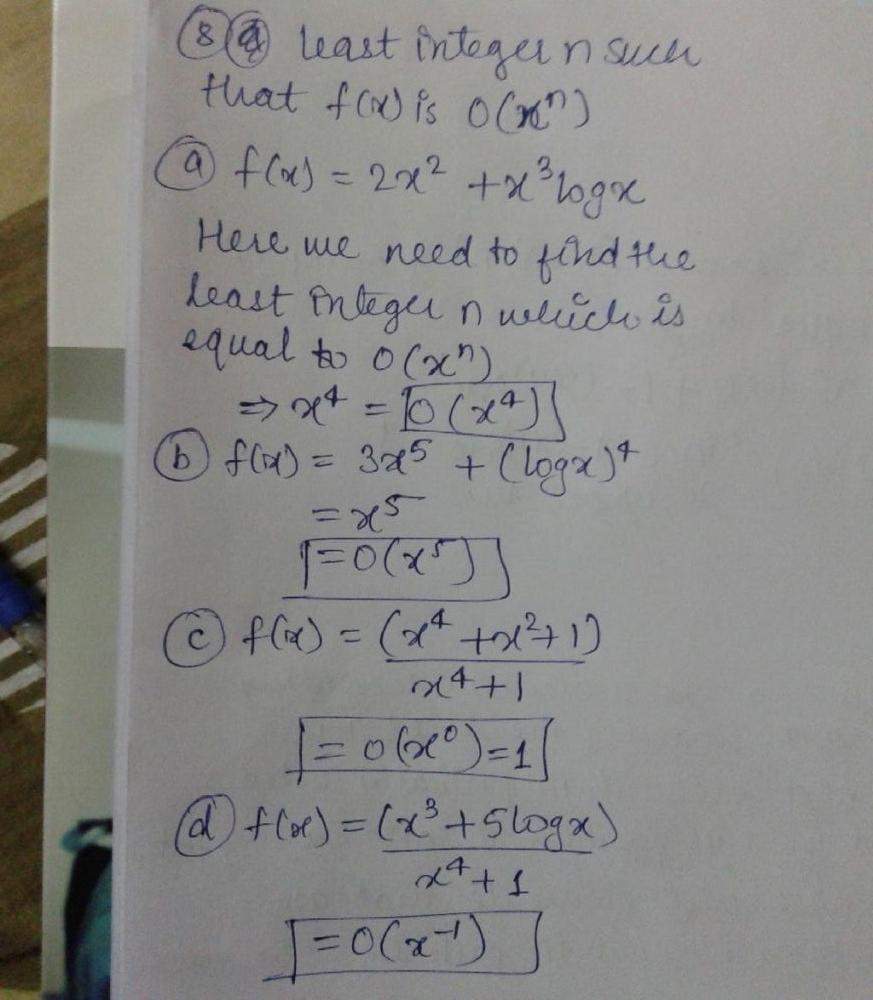 8 least integer n such
that f(x) is O(xⁿ)
a f(x) = 2x² + x³ log x
Here we need to find the
least integer n which is
equal to O(xⁿ)
⇒ x⁴ = O(x⁴)
b f(x) = 3x⁵ + (log x)⁴
= x⁵
= O(x⁵)
c f(x) = (x⁴ + x² + 1)
x⁴ + 1
= O(x⁰) = 1
d f(x) = (x³ + 5 log x)
x⁴ + 1
= O(x⁻¹)